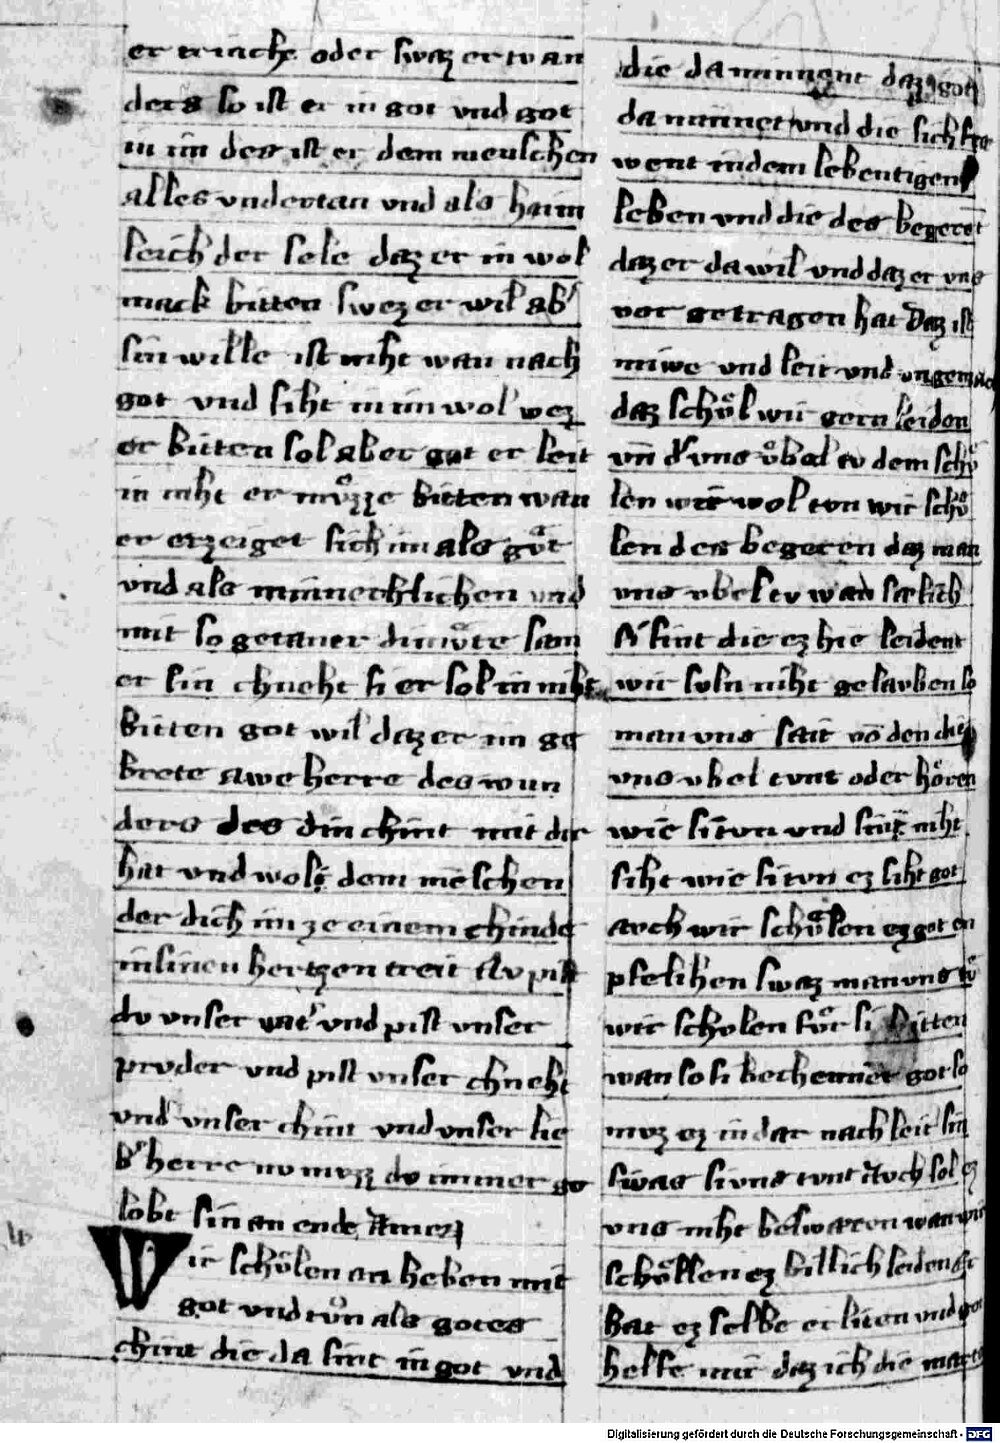 er trinche oder swaz er tv an
ders so ist er in got vnd got
in im des ist er dem menschen
alles vndertan vnd als haim
leich der sele daz er in wol
mack bitten swez er wil ab
sin wille ist niht wan nach
got vnd siht in im wol wez
er bitten sol aber got er leit
in niht er mvͤzze bitten wan
er erzeiget sich im als gvͤt
vnd als minnechlichen vnd
mit so getaner dimvͤte sam
er sin chneht si er sol in niht
bitten got wil daz er im ge
biete awe herre des wun
ders des din chint mit dir
hat vnd wol dem menschen
der dich im ze einem chinde
in sinen hertzen treit dv pist
dv vnser vat' vnd pist vnser
prvder vnd pist vnser chneht
vnd vnser chint vnd vnser lie
b' herre nv mvzz dv immer ge
lobt sin an ende Amen
Wir schoͤlen an heben mit
got vnd tvͦn als gotes
chint die da sint in got vnd
die da minnent daz got
da minnet vnd die sich fre
went in dem lebentigen
leben vnd die des begeret
daz er da wil vnd daz er vns
vor getragen hat Daz ist
mivve vnd leit vnd vngemach
daz schoͤl wir gern leiden
vn̄ d' vns vͤbel tv dem schoͤ
len wir wol tvn wir schoͤ
len des begeren daz man
vns vbel tv wan sælich
si sint die ez hie leident
wir svln niht gelavben so
man vns sait vō den die
vns vbel tvnt oder hoͤren
wie si tvn vnd siht niht
siht wie si tvn ez siht got
avch wir schoͤlen ez got en
pfelihen swaz man vns tvͦ
wir scholen fvͤr si bitten
wan so si bechennet got so
mvz ez in dar nach leit sin
swas si vns tvnt Avch sol ez
vns niht beswæren wan wir
schoͤllen ez billich leiden Er
hat ez selbe erliten vnd got
helfe mir daz ich die marter